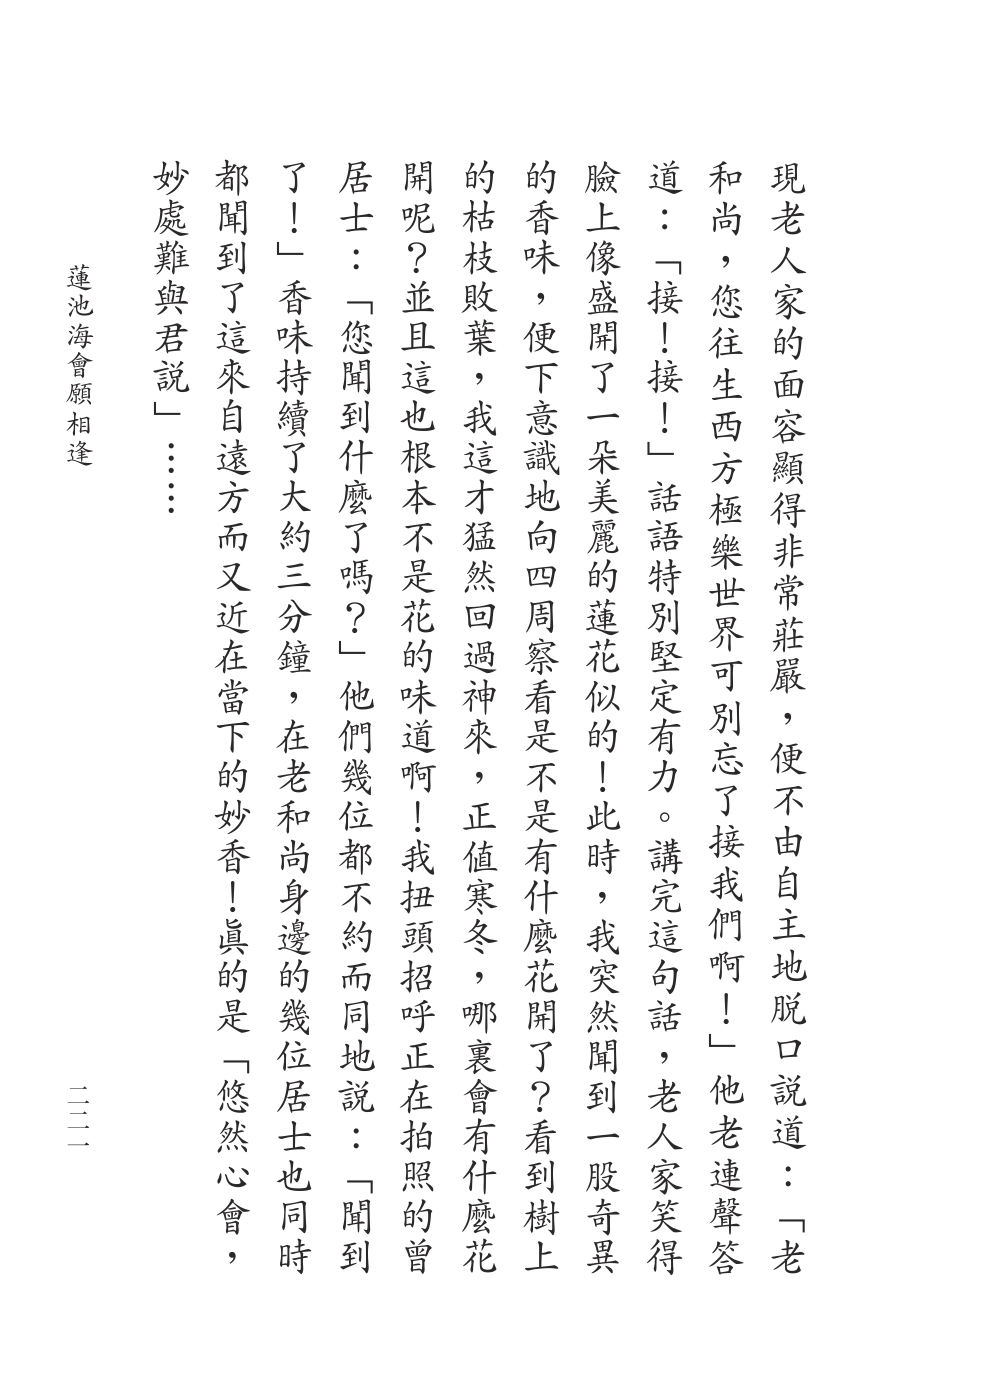 現老人家的面容顯得非常莊嚴，便不由自主地脫口說道：「老
和尚，您往生西方極樂世界可別忘了接我們啊！」他老連聲答
道：「接！接！」話語特別堅定有力。講完這句話，老人家笑得
臉上像盛開了一朵美麗的蓮花似的！此時，我突然聞到一股奇異
的香味，便下意識地向四周察看是不是有什麼花開了？看到樹上
的枯枝敗葉，我這才猛然回過神來，正值寒冬，哪裏會有什麼花
開呢？並且這也根本不是花的味道啊！我扭頭招呼正在拍照的曾
居士：「您聞到什麼了嗎？」他們幾位都不約而同地說：「聞到
了！」香味持續了大約三分鐘，在老和尚身邊的幾位居士也同時
都聞到了這來自遠方而又近在當下的妙香！眞的是「悠然心會，
妙處難與君說」……
蓮池海會願相逢
二二一